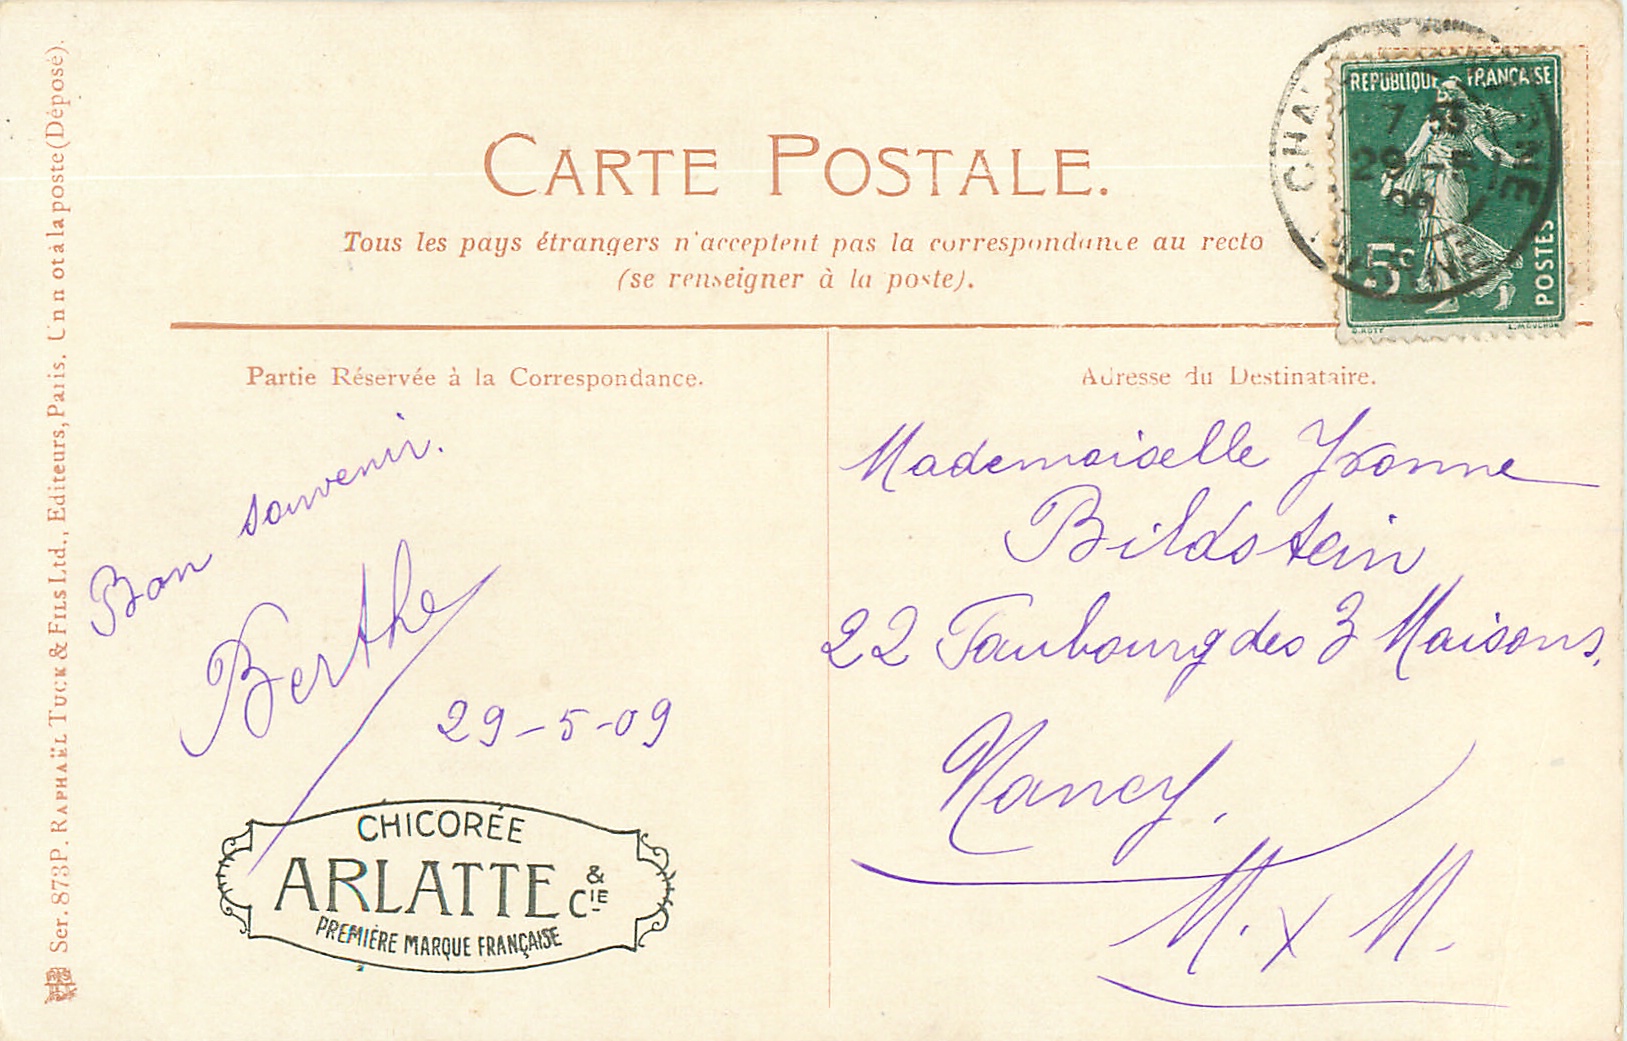 CARTE POSTALE.
Tous les pays étrangers n'acceptent pas la correspondance au recto
(se renseigner à la poste).
Partie Réservée à la Correspondance.
Bon souvenir.
Berthe
29-5-09
CHICORÉE
ARLATTE & CIE
PREMIÈRE MARQUE FRANÇAISE
Adresse du Destinataire.
Mademoiselle Yvonne
Bildstein
22 Faubourg des 3 Maisons,
Nancy,
M. x M.
REPUBLIQUE FRANÇAISE
5c
POSTES
O. ROTY
L. MOUCHON
7 35
29 -5
09
Ser. 873P. RAPHAËL TUCK & FILS Ltd., Editeurs, Paris.
(Déposé).